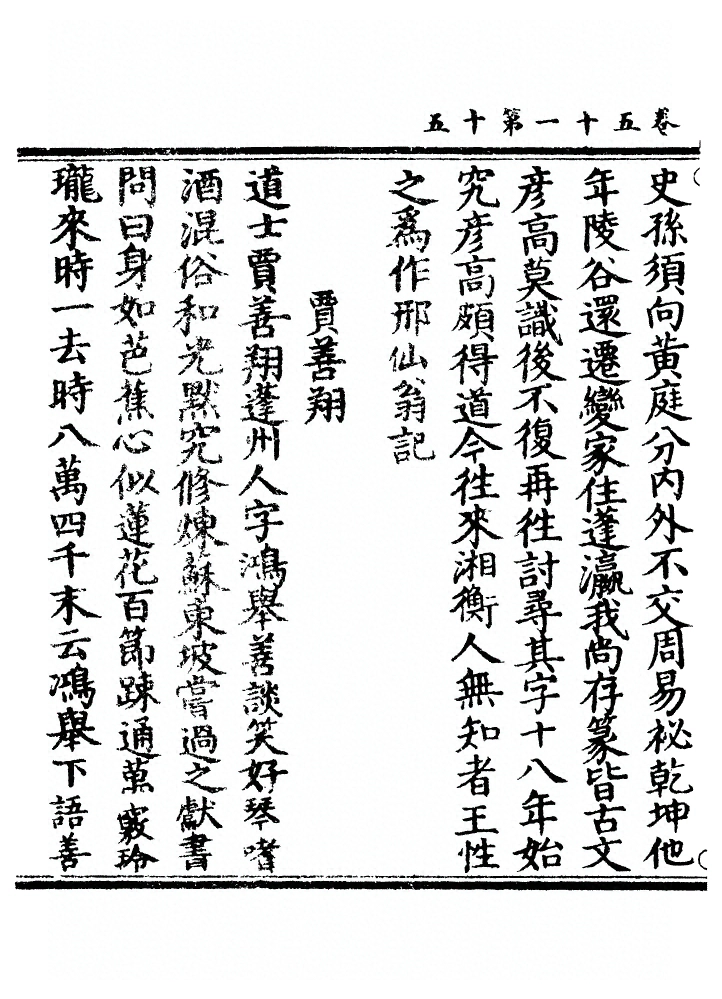 卷五十一第十五
史孫須向黃庭分內外不交周易祕乾坤他
年陵谷還遷變家住蓬瀛我尚存篆皆古文
彥高莫識後不復再徃討尋其字十八年始
究彥高頗得道今徃來湘衡人無知者王性
之爲作邢仙翁記
賈善翔
道士賈善翔蓬州人字鴻舉善談笑好琴嗜
酒混俗和光默究修煉蘇東坡嘗過之獻書
問曰身如芭蕉心似蓮花百節踈通萬竅玲
瓏來時一去時八萬四千末云鴻舉下語善